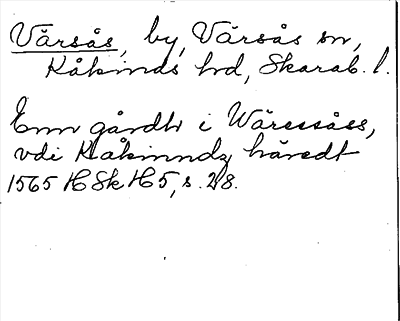 Vårsås, by, Vårsås sn,
Kåkinds hd, Skarab. l.
Enn gårdh i Wåressåss,
vdi Kåkinndz häredt
1565 HSkH 5, s. 28.